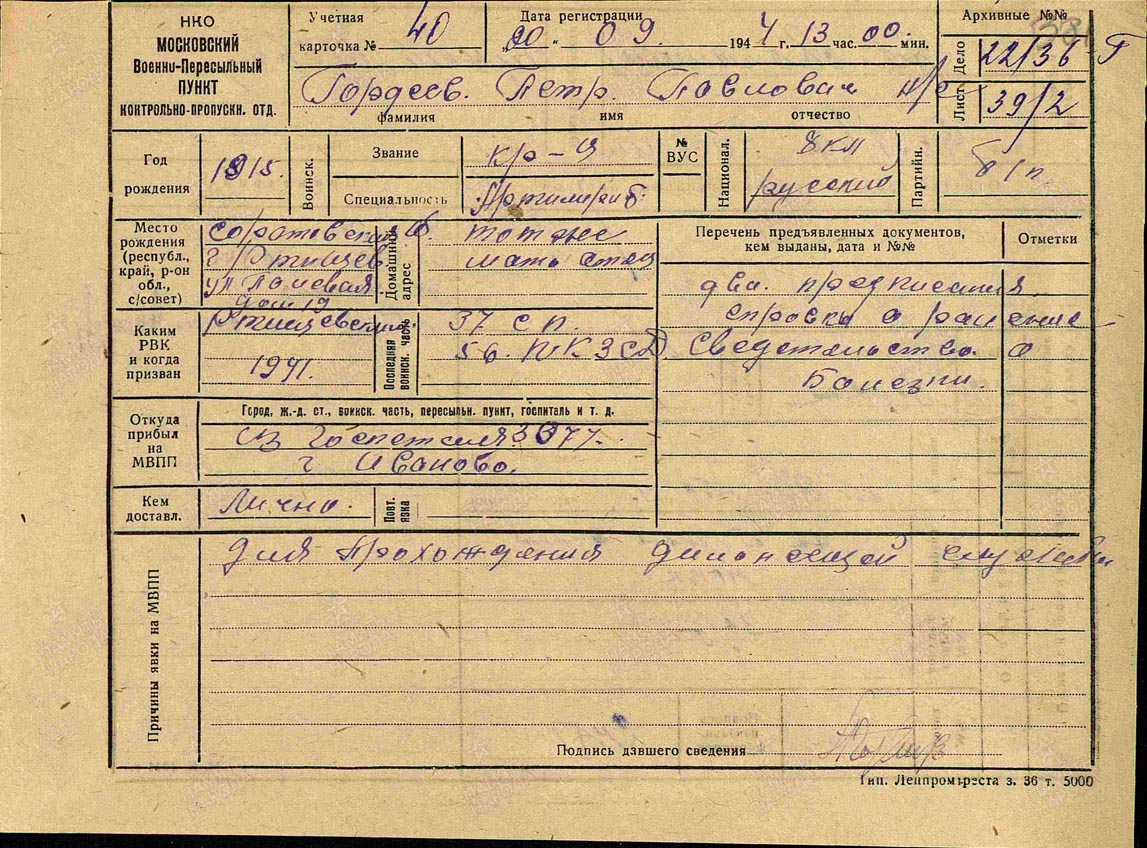 НКО
МОСКОВСКИЙ
Военно-Пересыльный
ПУНКТ
КОНТРОЛЬНО-ПРОПУСКН. ОТД.
Учетная
карточка № 40
Дата регистрации
„20" 09 1944 г. 13 час. 00 мин.
Архивные №№
Дело 22/36 Г
Лист 39/2
Гордеев. Петр. Павлович н/с
фамилия имя отчество
Год
рождения
1915.
Воинск.
Звание
кр-ц
Специальность
№
ВУС
Национал.
8 кл
русский
Партийн.
б/п.
Место
рождения
(республ.,
край, р-он
обл.,
с/совет)
Саратовская об.
г Ртищев
ул Полевая
дом 19
Домашний
адрес
тот же
мать отец
Перечень предъявленных документов,
кем выданы, дата и №№
Отметки
два. предписания
справка о ранение
Сведетельство. о
Болезни.
Каким
РВК
и когда
призван
Ртищевским
1941.
Последняя
воинск. часть
37 с п.
56.
Откуда
прибыл
на
МВПП
Город, ж.-д. ст., воинск. часть, пересыльн. пункт, госпиталь и т. д.
из Госпеталя 3377.
г Иваново.
Кем
доставл.
Лично.
Повт.
явка
Причины явки на МВПП
для прохождения дальнейшей службы
Подпись давшего сведения
Тип. Ленпромтреста з. 36 т. 5000